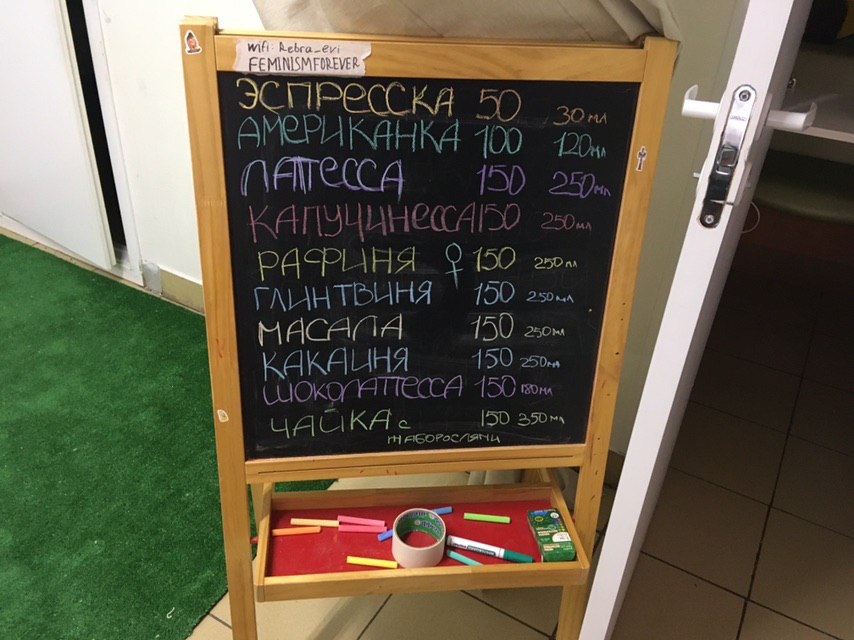 Wifi: Rebra_evi
FEMINISMFOREVER
ЭСПРЕССКА 50 30 мл
АМЕРИКАНКА 100 120 мл
ЛАТТЕССА 150 250 мл
КАПУЧИНЕССА 150 250 мл
РАФИНЯ ♀ 150 250 мл
ГЛИНТВИНЯ 150 250 мл
МАСАЛА 150 250 мл
КАКАИНЯ 150 250 мл
ШОКОЛАТТЕССА 150 180 мл
ЧАЙКА с 150 350 мл
ЖАБОРОСЛЯМИ